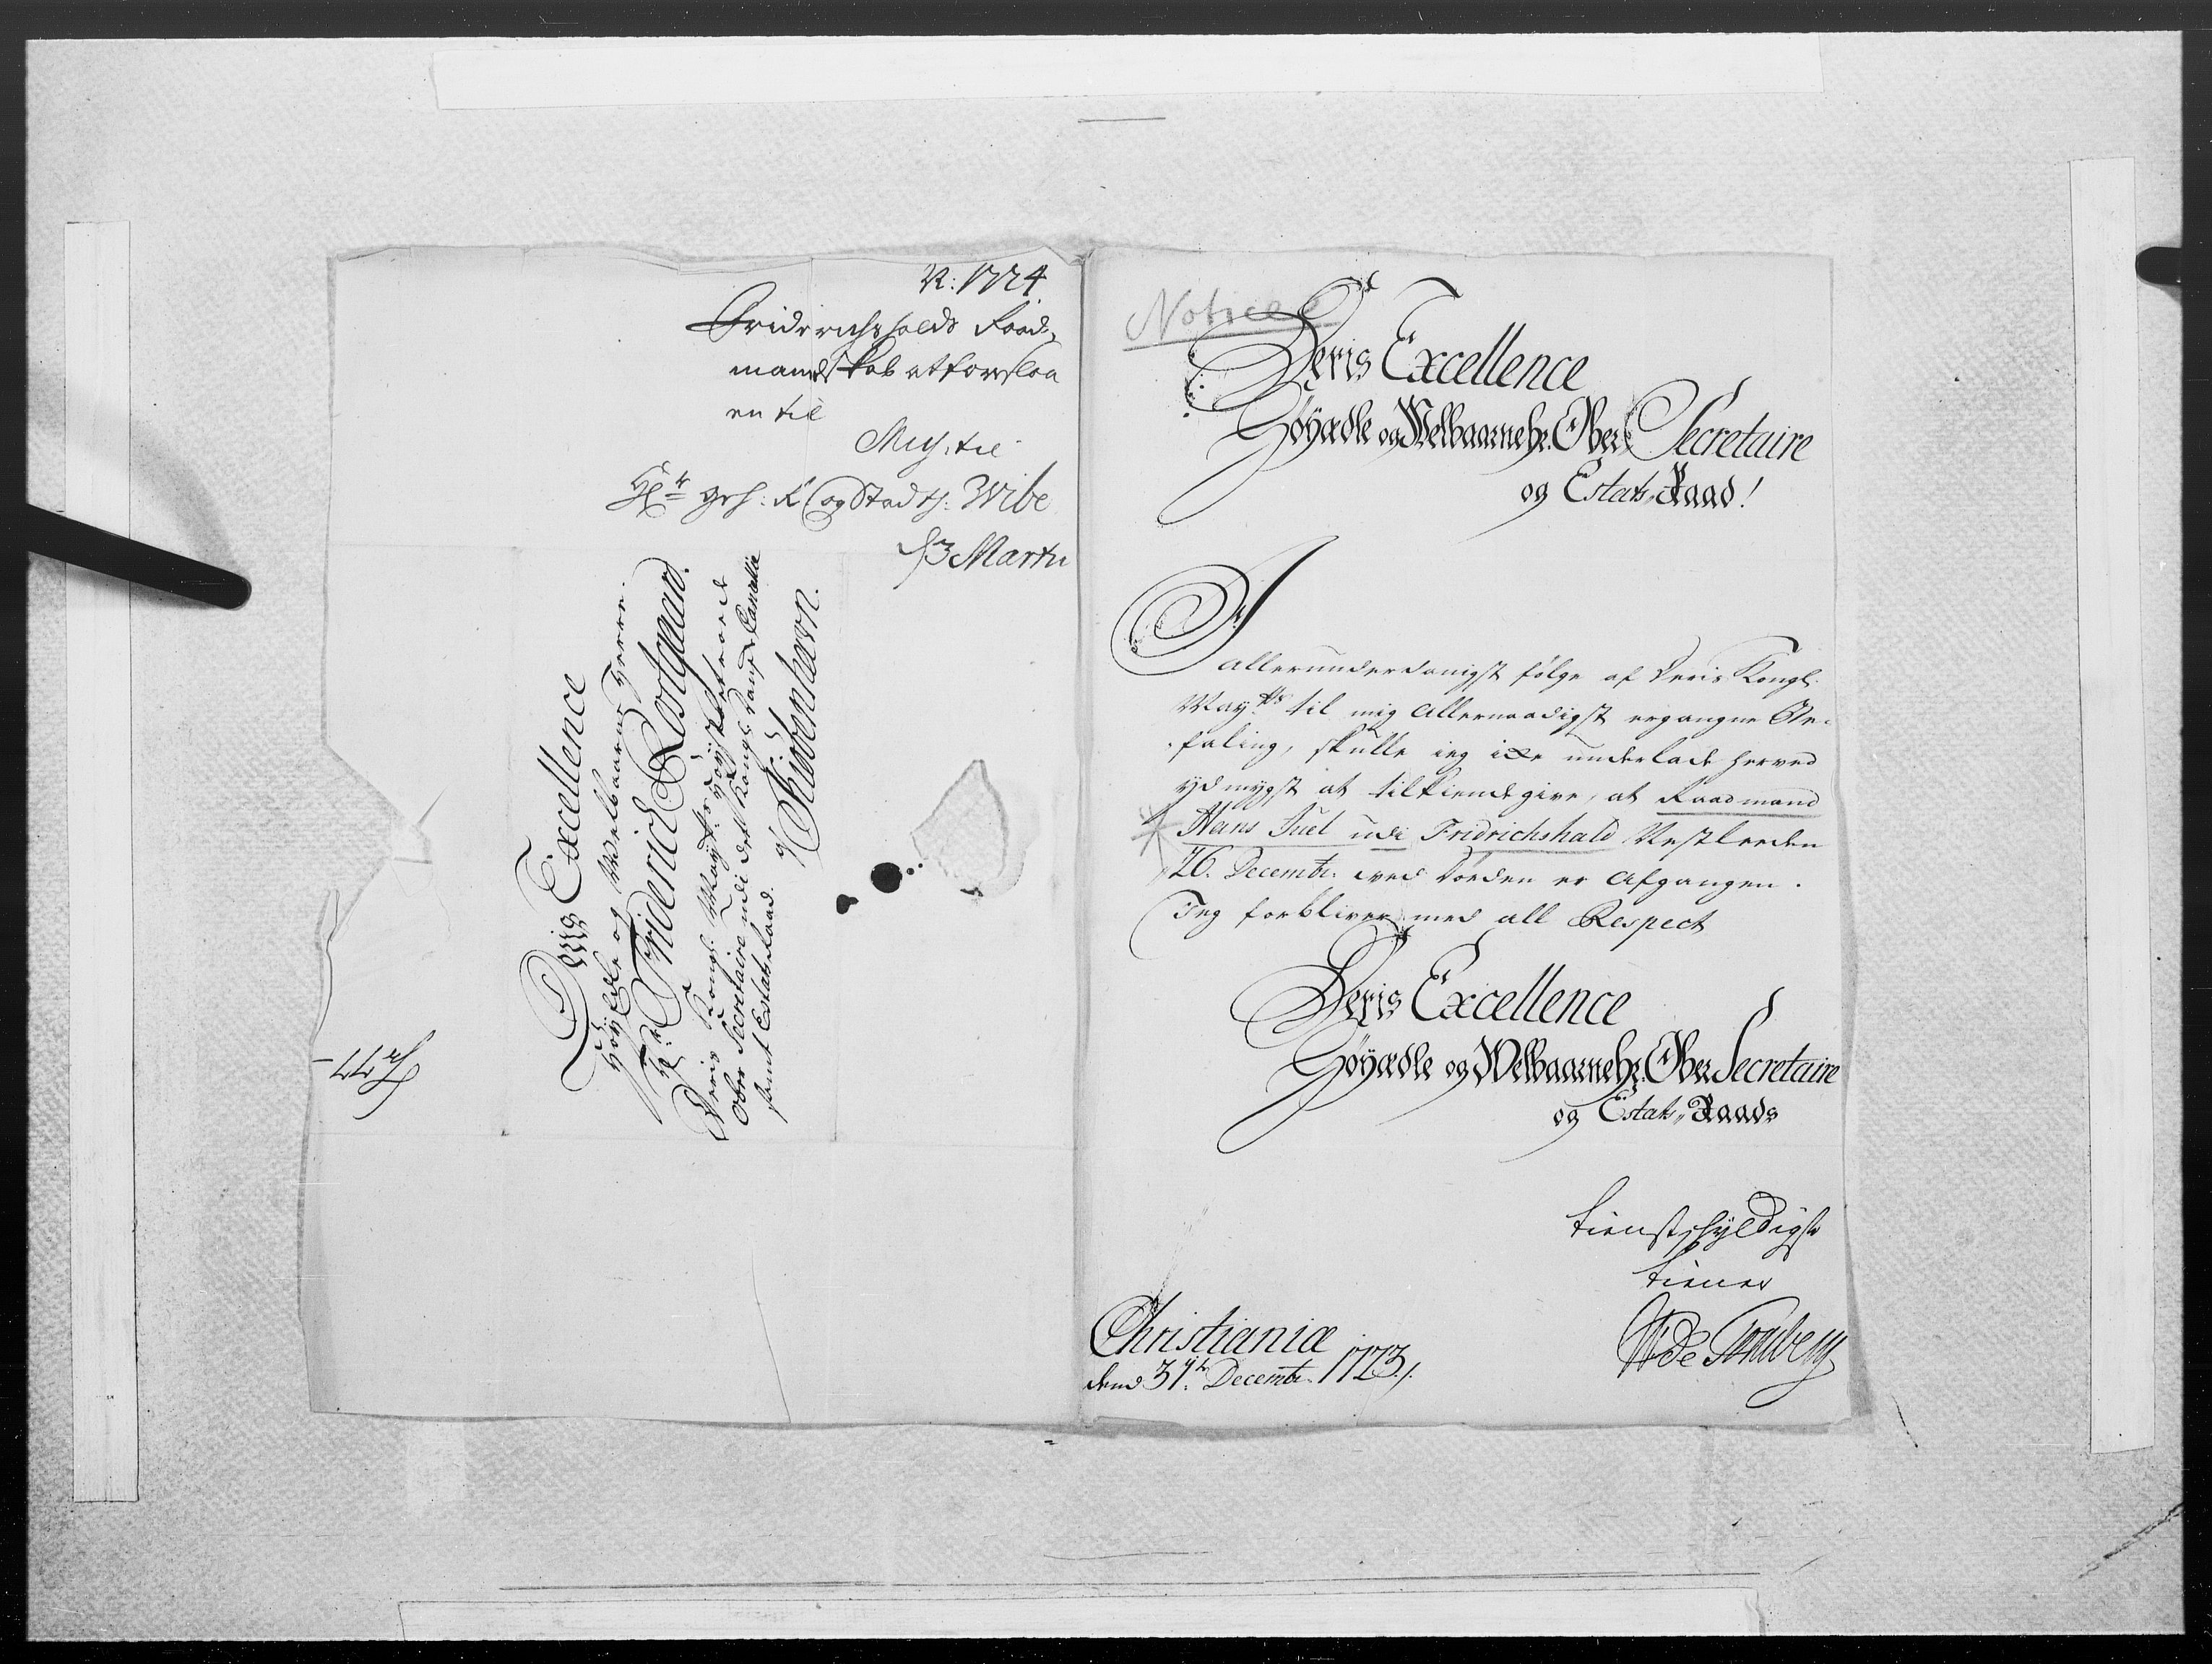 N: 1724
Friderichshalds Raad-
mandskab at forreslaa
en til
Miss. til
Hr. geh: R og Stadth: Wibe
d. 3 Martii
Deris Excellence
Høyædle og Welbaarne Herre
Hr. Friderich Rostgaard.
Deris Kongl: Mayts: høyst betroede
Ober Secretaire udi det Kongl: Danske Cancellie
samt Estats Raad.
a/ Kiøbenhavn.
Notice
Deris Excellence
Høyædle og Welbaarne Hr. Ober Secretaire
og Estats-Raad!
I
allerunderdanigst følge af Deris Kongl:
Mayts til mig allernaadigst ergangne Be-
faling, skulle ieg icke underlade herved
ydmygst at tilkiendegive, at Raadmand
Hans Juel udi Fridrichshald Nestleeden
26. Decembr: ved Døden er afgangen.
Jeg forbliver med all Respect
Deris Excellence
Høyædle og Welbaarne Hr. Ober Secretaire
og Estats-Raads
tienstskyldigste
tiener
W de Tonsberg
Christiania
dend 31te Decembr. 1723.